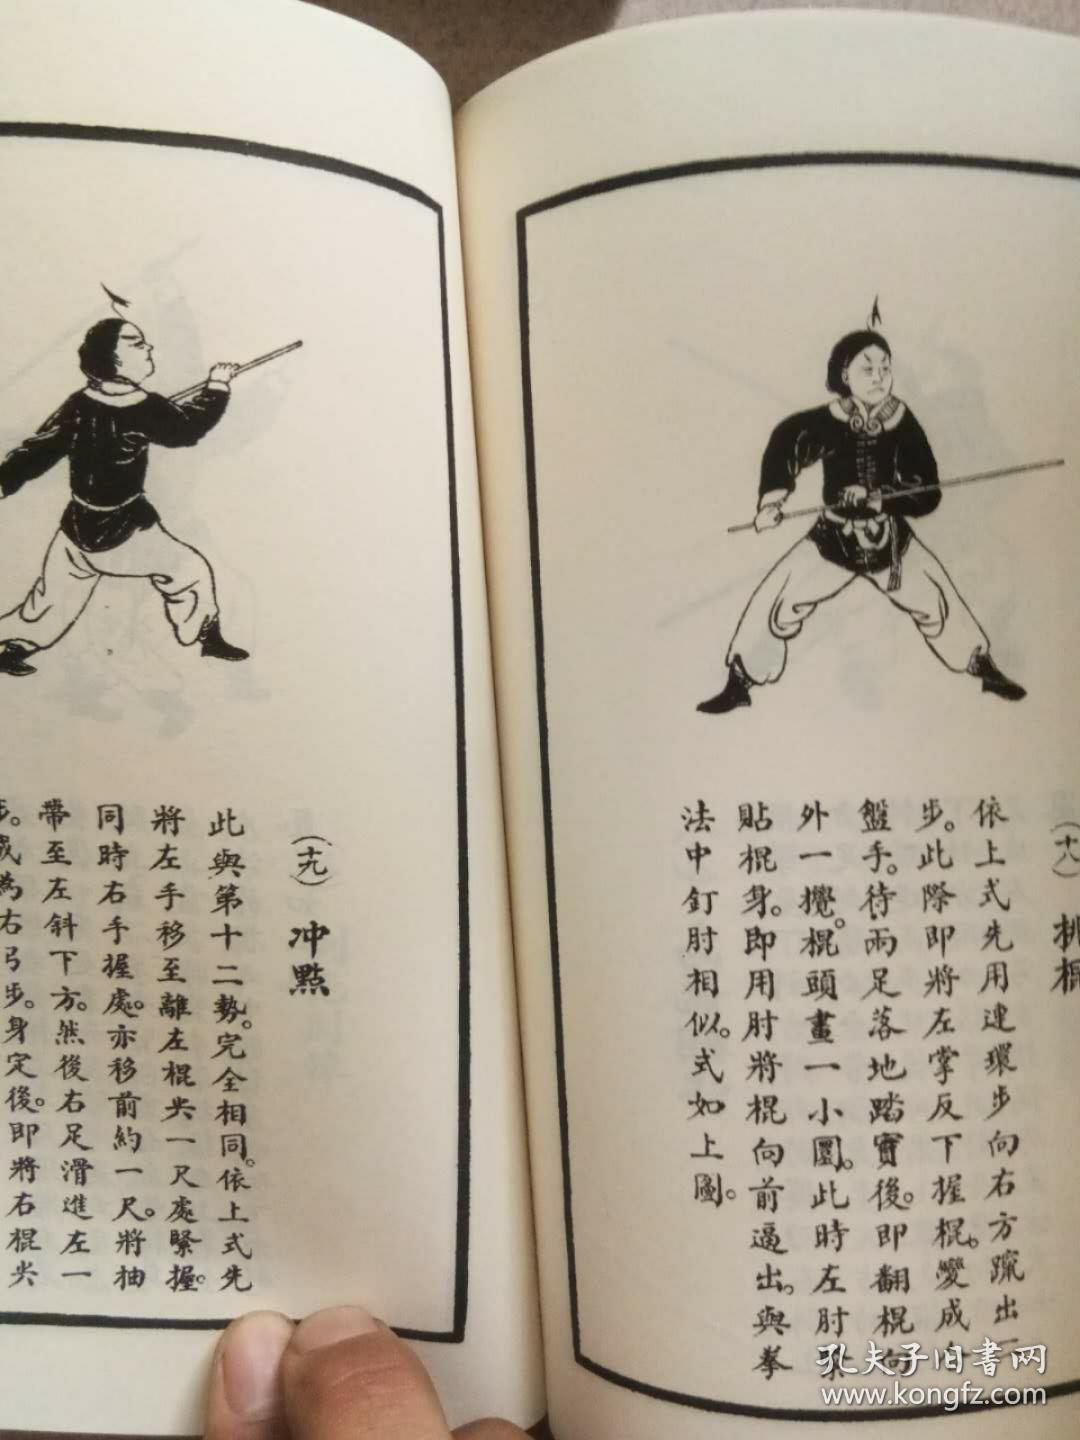 (十八) 挑棍
依上式先用連環步向右方躥出一
步。此際即將左掌反下握棍。變成
盤手。待兩足落地踏實後。即翻棍向
外一攪。棍頭畫一小圈。此時左肘緊
貼棍身。即用肘將棍向前逼出。與拳
法中釘肘相似。式如上圖。
(十九) 冲點
此與第十二勢。完全相同。依上式先
將左手移至離左棍尖一尺處緊握。
同時右手握處。亦移前約一尺。將抽
帶至左斜下方。然後右足滑進左一
步。成為右弓步。身定後。即將右棍尖
孔夫子旧書网
www.kongfz.com